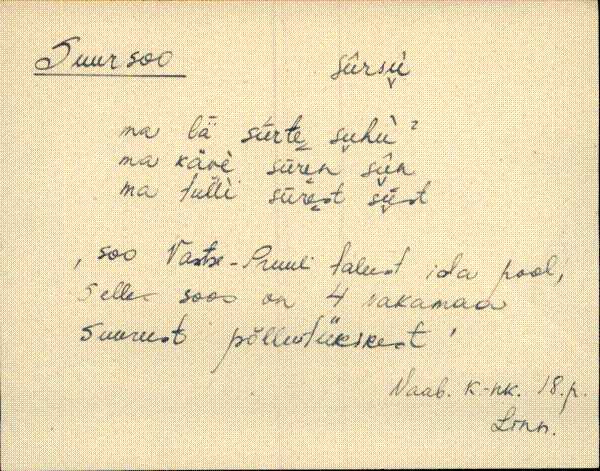 Suursoo sūrsù̬
ma lä sūrtĕ̬ su̬hù̬ ²
ma kävè sūrĕ̬n sūn
ma tulli sūrĕ̬st sūst
, soo Vastse-Pruuli talust ida pool,
selles soos on 4 vakamaa
suurust põllutükikest '
Naab. k-nk. 18.p.